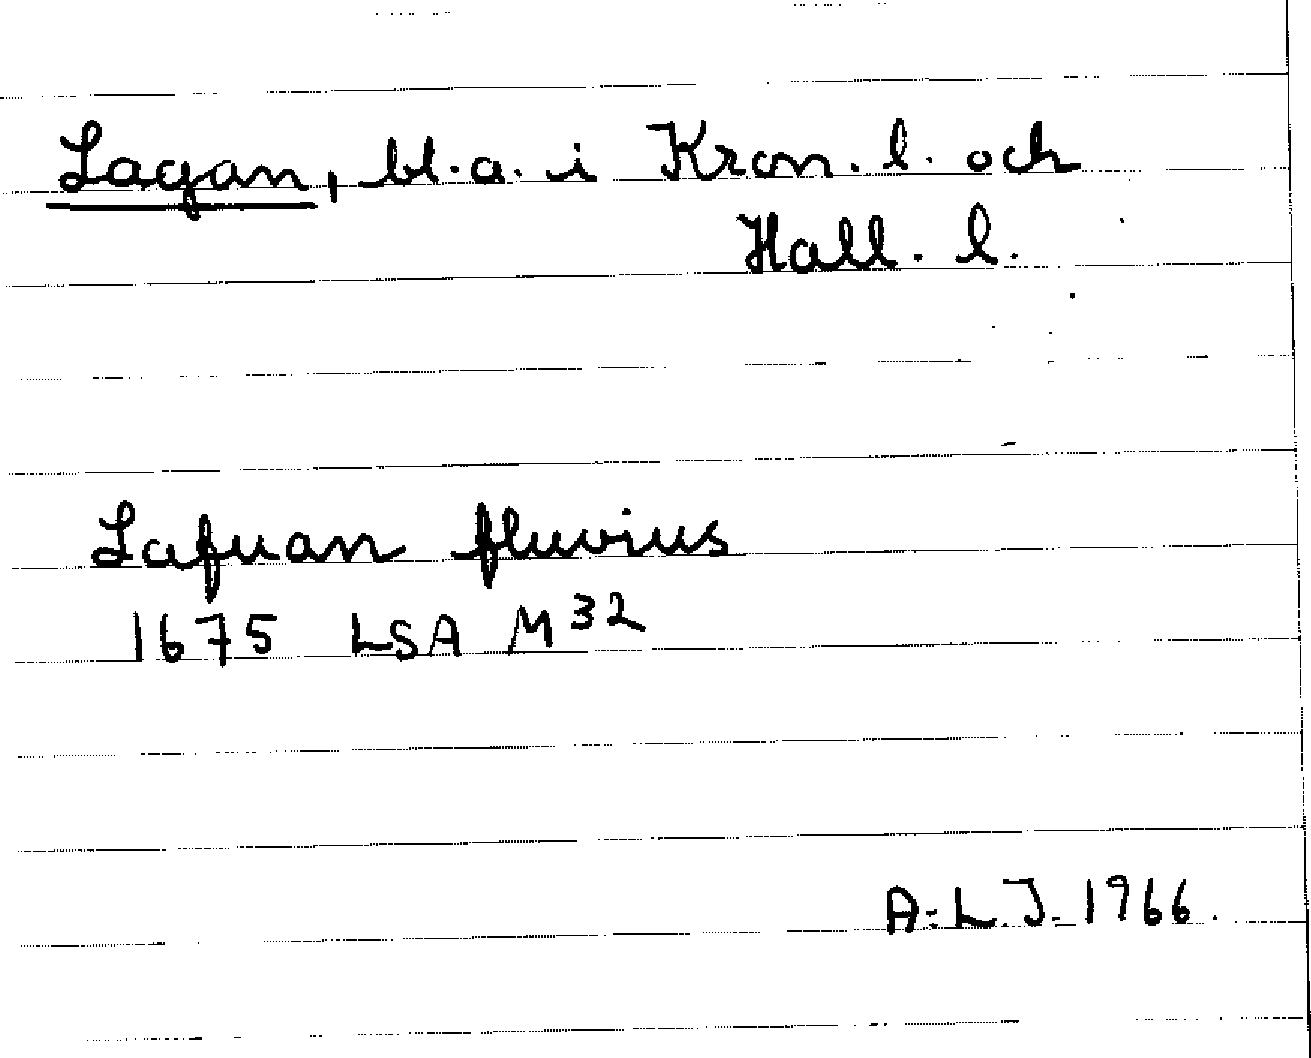 Lagan, bl.a. i Kron. l. och
Hall. l.
Lafuan fluvius
1675 LSA M 32
A-L.J. 1966.